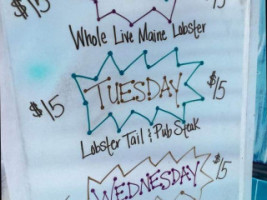 $15
Whole Live Maine Lobster
$15 TUESDAY $15
Lobster Tail & Pub Steak
WEDNESDAY $15